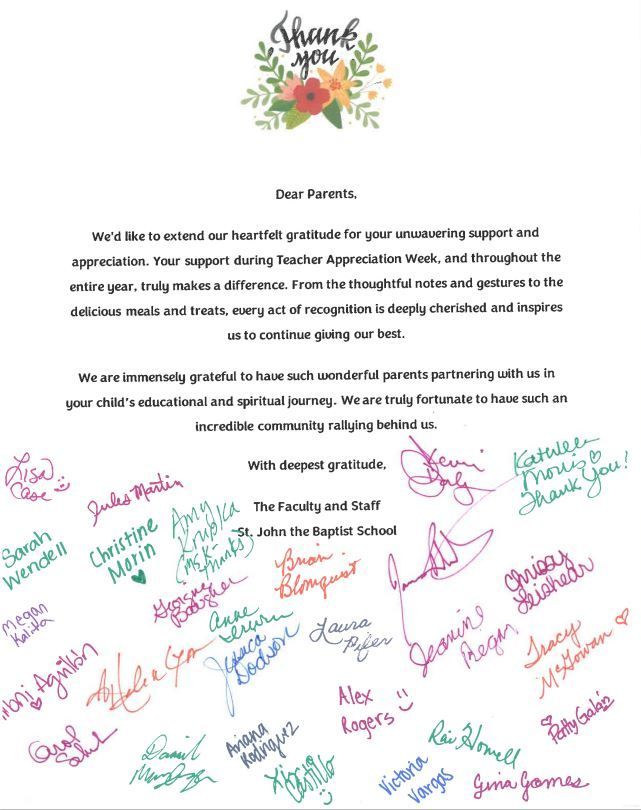 Thank
you
Dear Parents,
We'd like to extend our heartfelt gratitude for your unwavering support and
appreciation. Your support during Teacher Appreciation Week, and throughout the
entire year, truly makes a difference. From the thoughtful notes and gestures to the
delicious meals and treats, every act of recognition is deeply cherished and inspires
us to continue giving our best.
We are immensely grateful to have such wonderful parents partnering with us in
your child's educational and spiritual journey. We are truly fortunate to have such an
incredible community rallying behind us.
With deepest gratitude,
The Faculty and Staff
St. John the Baptist School
Lisa
Case
Jules Martin
Kathleen
Morris
Thank You!
Sarah
Wendell
Christine
Morin
Amy
Krupka
Brian
Blomquist
Chrissy
Megan
Kalita
Anne
Jessica
Dodson
Laura
Pifer
Jeanine
Regan
Tracy
McGowan
Alex
Rogers
Patty Galan
Carol
Ariana
Rodriguez
Castillo
Victoria
Vargas
Howell
Gina Gomes